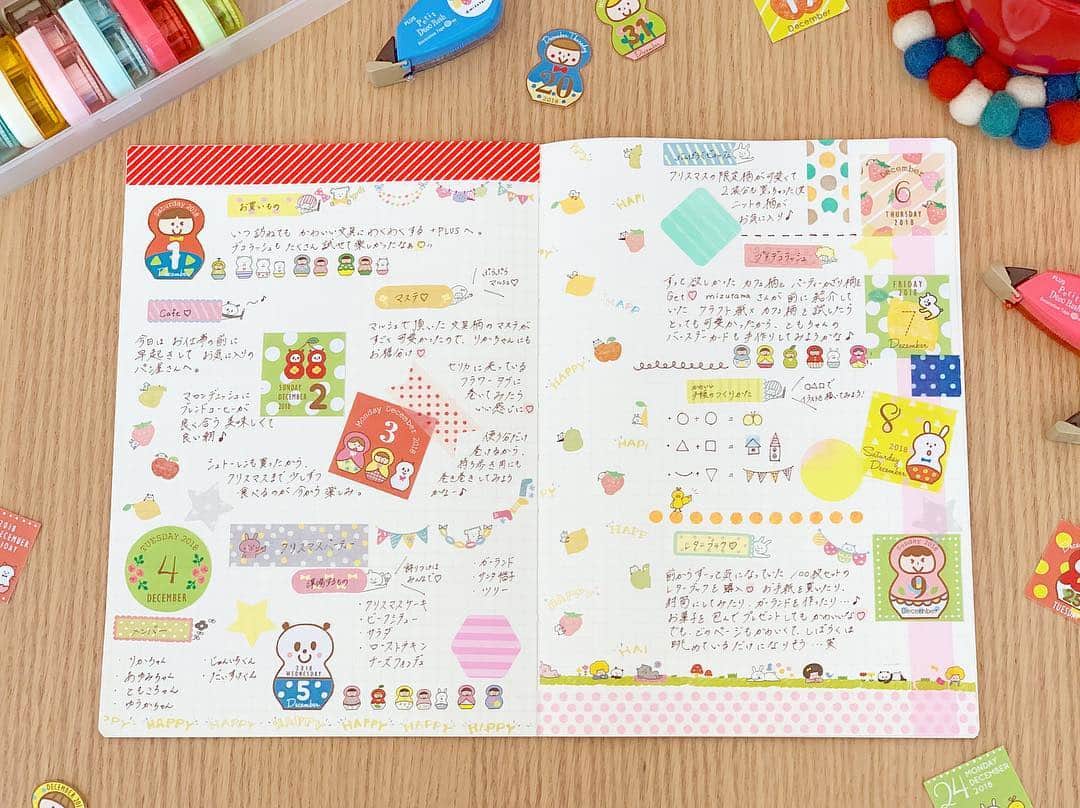 PLUS
Petit
Deco Rush
December Thursday
20
2018
31
17
December
Saturday 2018
1
December
お買いもの
いつ訪ねても かわいい文具にわくわくする +PLUSへ。
デコラッシュもたくさん試せて楽しかったなぁ
Cafe♡
今日は お仕事の前に
早起きして お気に入りの
パン屋さんへ。
マロンデニッシュに
ブレンドコーヒーが
良く合う 美味しくて
良い朝♪
シュトーレンも買ったから、
クリスマスまで少しずつ
食べるのが今から楽しみ。
SUNDAY
DECEMBER
2018
2
マステ♡
マルシェ♡
マルシェで頂いた文具柄のマステが
すごく可愛かったので、りかちゃんにも
お裾分け♡
セリカに売っている
フラワータグに
巻いてみたら
いい感じに♡
使う分だけ
巻けるから、
持ち歩き用にも
巻き巻きしてみよう
かな〜♪
Monday December
3
2018
TUESDAY 2018
4
DECEMBER
クリスマスパーティー
準備するもの
飾りつけは
みんなで♡
・ガーランド
・サンタ帽子
・ツリー
・クリスマスケーキ
・ビーフシチュー
・サラダ
・ローストチキン
・チーズフォンデュ
メンバー
・りかちゃん
・あゆみちゃん
・ともこちゃん
・ゆうかちゃん
・じゅんいちくん
・だいすけくん
2018
WEDNESDAY
5
December
HAPPY HAPPY HAPPY HAPPY HAPPY HAPPY
クリスマスの限定柄が可愛くて
2 個も買っちゃった
ニットの柄が
お気に入り♪
December
6
THURSDAY
2018
プチデコラッシュ
ずっと欲しかったカフェ柄と パーティーかざり柄を
Get♡ mizutamaさんが前に紹介して
いた クラフト紙×カフェ柄を試したら
とっても可愛かったから、ともちゃんの
バースデーカードも手作りしてみようかな♪
FRIDAY
2018
7
December
かわいい
手帳のつくりかた
○△□で
イラストを描いてみよう!
・○+○=
・△+□=
・⌣+▽=
8
2018
Saturday
December
レターブック♡
前からずっと気になっていた 100枚セットの
レターブックを購入♡ お手紙を書いたり、
封筒にしてみたり、ガーランドを作ったり…♪
お菓子を包んでプレゼントしてもかわいいな♡
でも、どのページもかわいくて、しばらくは
眺めているだけになりそう…笑
Sunday 2018
9
December
HAPPY
2018
DECEMBER
25
TUESDAY
24
MONDAY
DECEMBER
2018
PLUS
Petit
Deco Rush
DECEMBER 2018